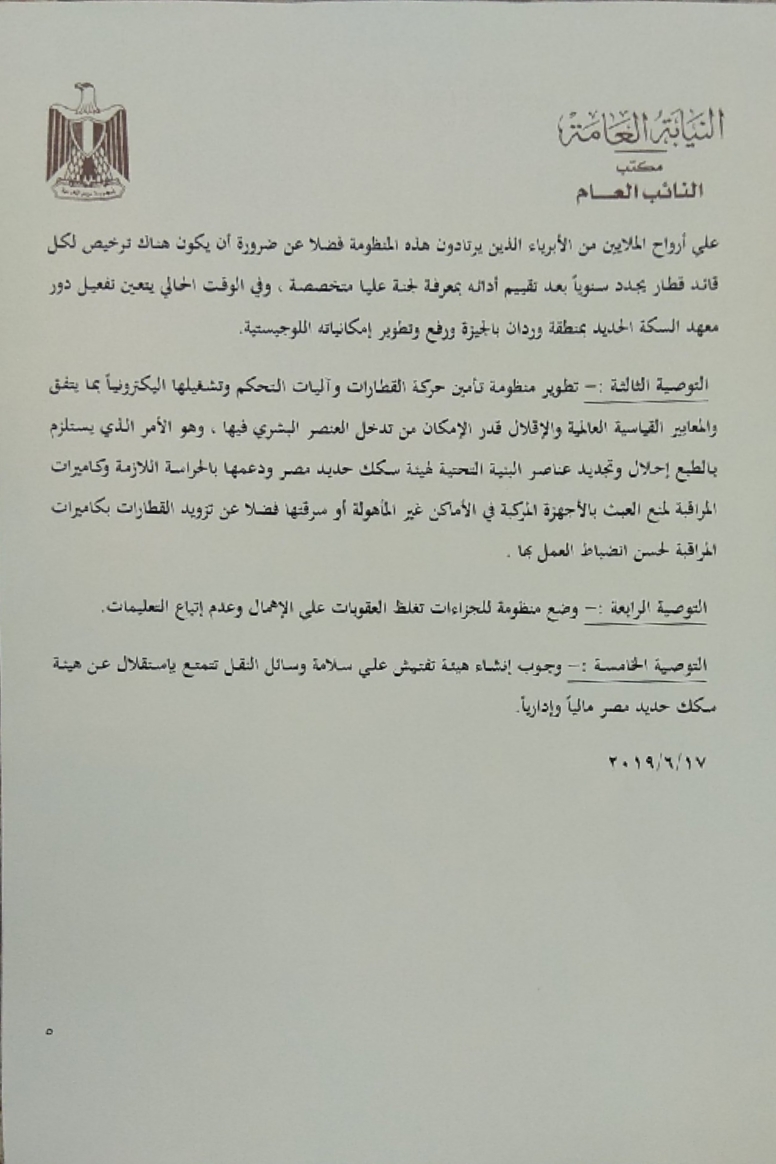 النيابة العامة
مكتب
النائب العـــام
علي أرواح الملايين من الأبرياء الذين يرتادون هذه المنظومة فضلا عن ضرورة أن يكون هناك ترخيص لكل
قائد قطار يجدد سنوياً بعد تقييم أدائه بمعرفة لجنة عليا متخصصة ، وفي الوقت الحالي يتعين تفعيل دور
معهد السكة الحديد بمنطقة وردان بالجيزة ورفع وتطوير إمكانياته اللوجيستية.
التوصية الثالثة :– تطوير منظومة تأمين حركة القطارات وآليات التحكم وتشغيلها اليكترونياً بما يتفق
والمعايير القياسية العالمية والإقلال قدر الإمكان من تدخل العنصر البشري فيها ، وهو الأمر الذي يستلزم
بالطبع إحلال وتجديد عناصر البنية التحتية لهيئة سكك حديد مصر ودعمها بالحراسة اللازمة وكاميرات
المراقبة لمنع العبث بالأجهزة المركبة في الأماكن غير المأهولة أو سرقتها فضلا عن تزويد القطارات بكاميرات
المراقبة لحسن انضباط العمل بها .
التوصية الرابعة :– وضع منظومة للجزاءات تغلظ العقوبات علي الإهمال وعدم إتباع التعليمات.
التوصية الخامسة :– وجوب إنشاء هيئة تفتيش علي سلامة وسائل النقل تتمتع بإستقلال عن هيئة
سكك حديد مصر مالياً وإدارياً.
٢٠١٩/٦/١٧
٥